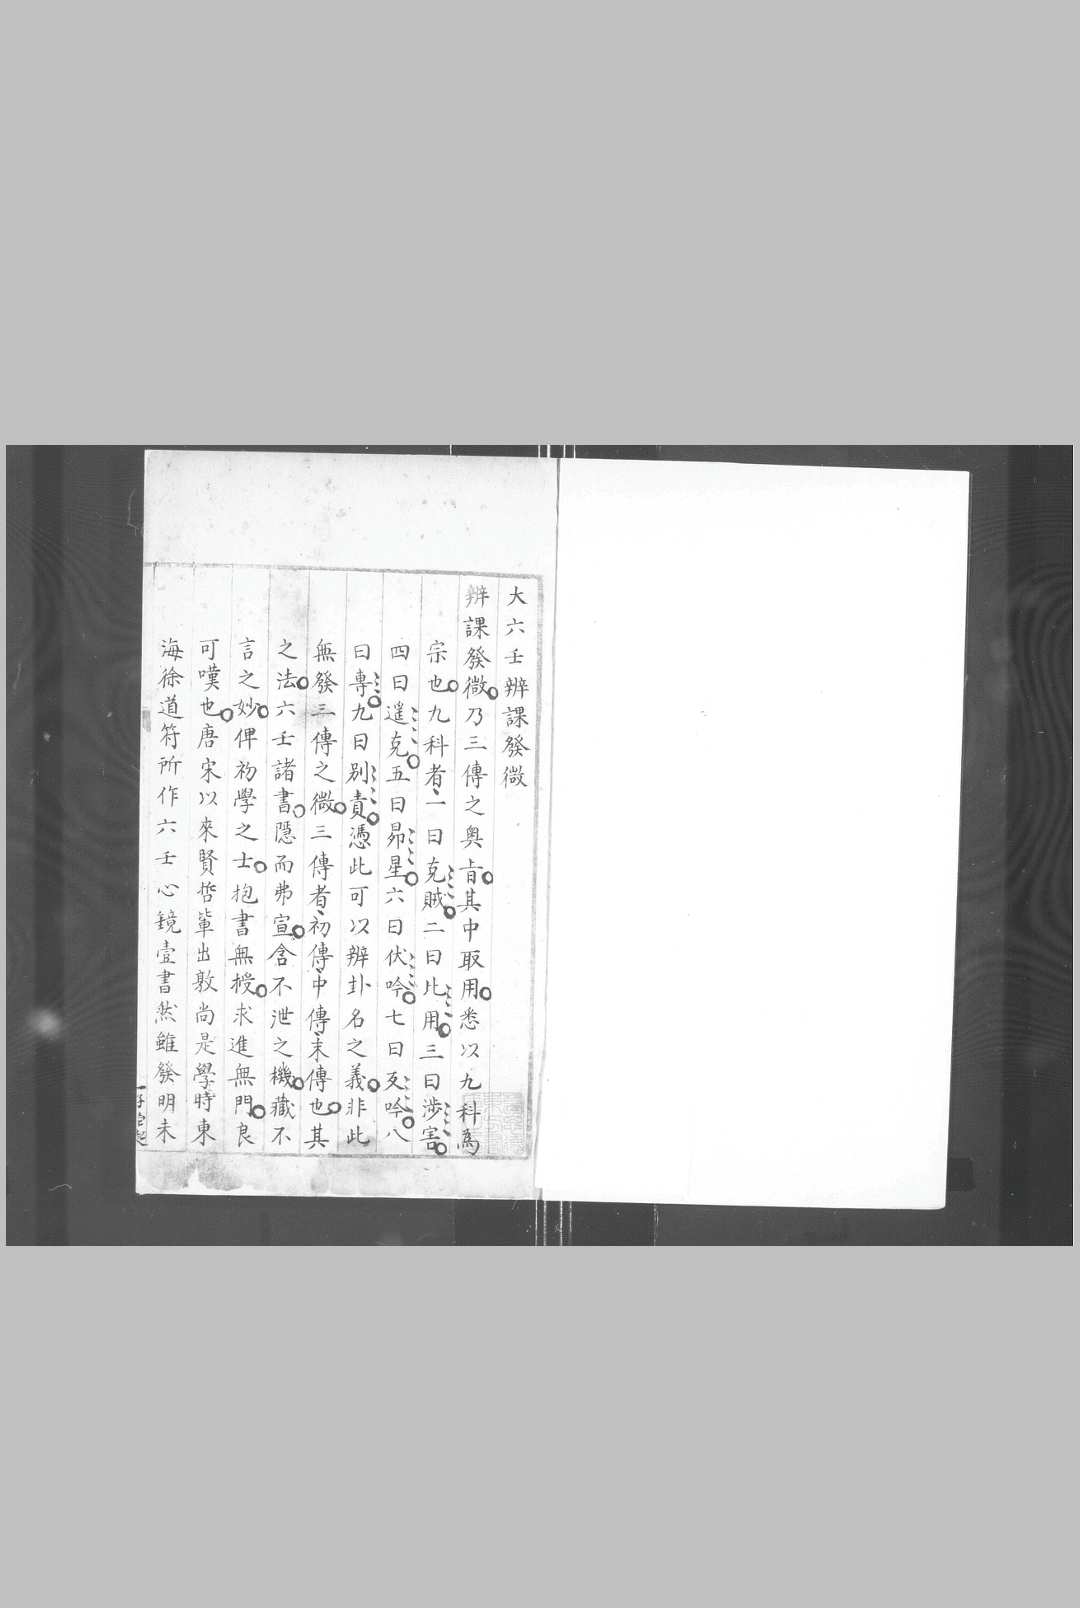 大六壬辨課發微
辨課發微乃三傳之奧旨其中取用悉以九科為
宗也九科者一曰克賊二曰比用三曰涉害
四曰遥克五曰昴星六曰伏吟七曰反吟八
曰專九曰别責憑此可以辨卦名之義非此
無發三傳之微三傳者初傳中傳末傳也其
之法六壬諸書隱而弗宣含不泄之機藏不
言之妙俾初學之士抱書無授求進無門良
可嘆也唐宋以來賢哲輩出敢尚是學時東
海徐道符所作六壬心鏡壹書然雖發明未